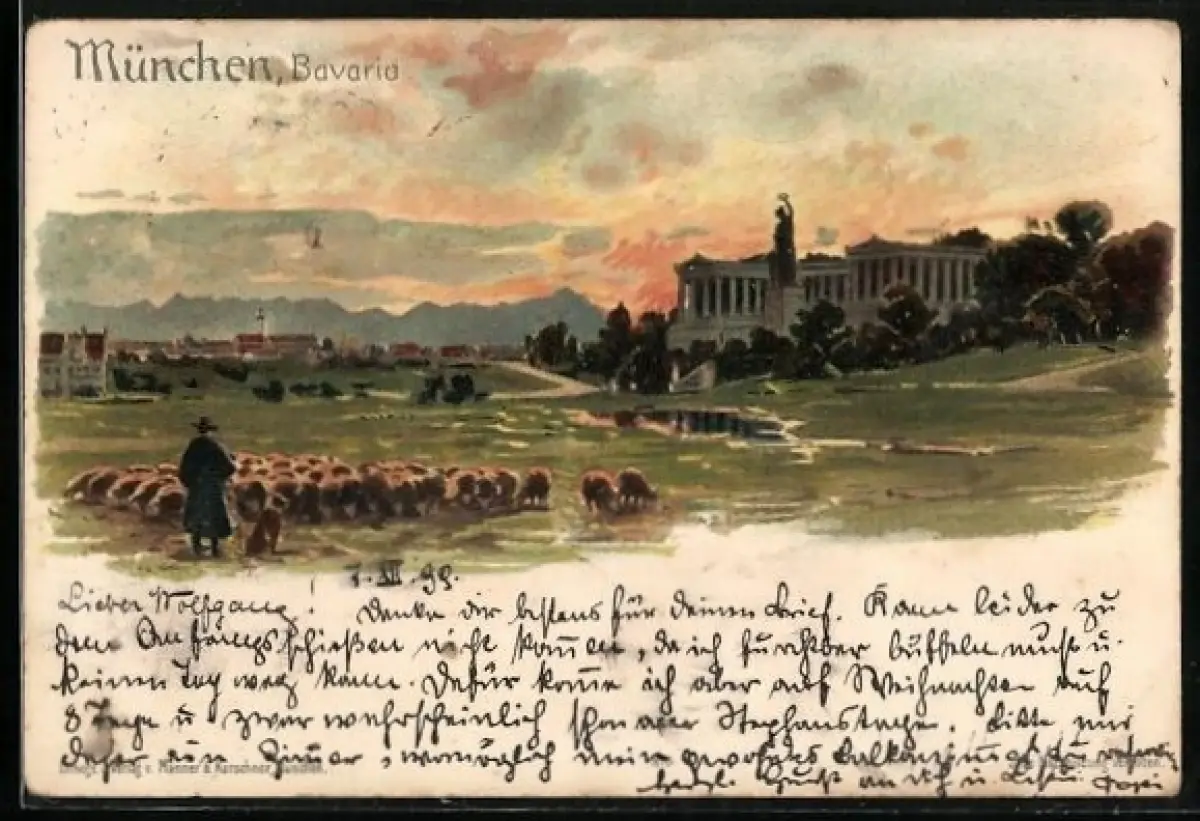 München, Bavaria
7. XII. 99.
Lieber Wolfgang! Danke dir bestens für deinen Brief. Kann leider zu
dem Anfangsschießen nicht kom̅en, da ich furchtbar büffeln muß u.
keinen Tag weg kann. Dafür kom̅e ich aber auf Weihnachten auf
8 Tage u. zwar wahrscheinlich schon am Stephanstage. Bitte mir
daher ein Zim̅er, womöglich mein gewohntes Balkonzim̅er zu
herzl. an dich u.
Verlag v.